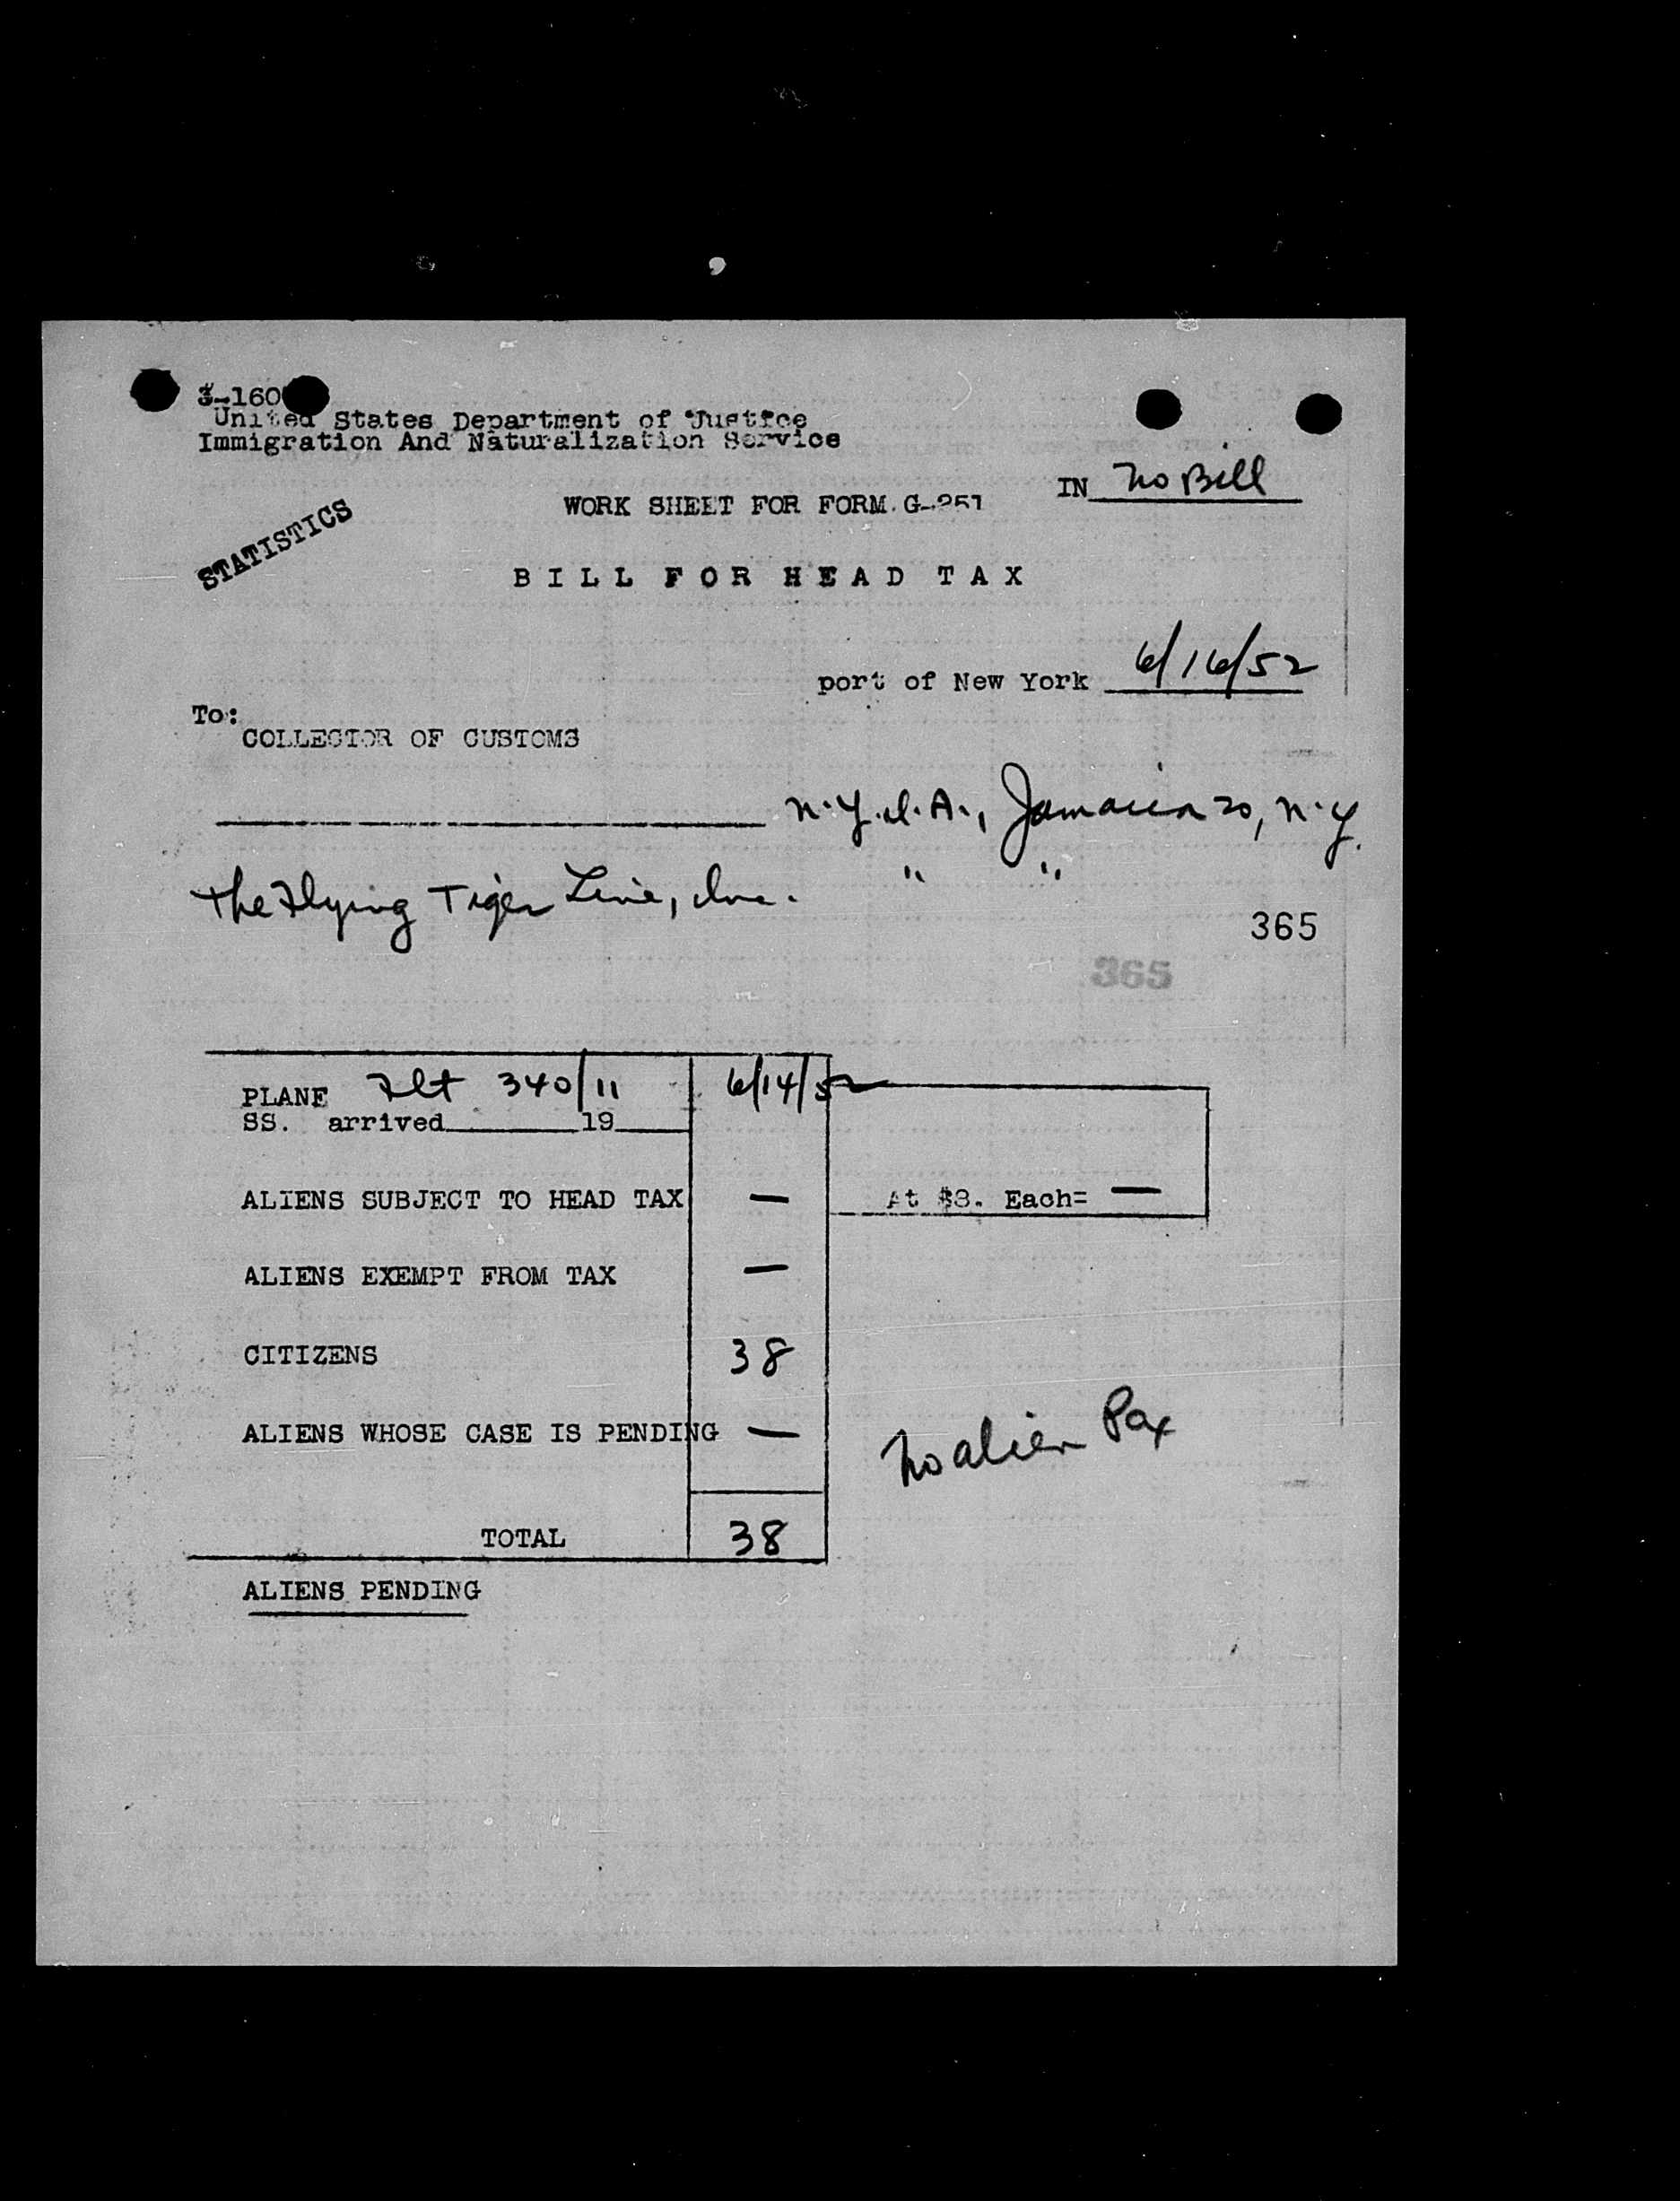 3-160
United States Department of Justice
Immigration And Naturalization Service
IN No Bill
WORK SHEET FOR FORM G-251
STATISTICS
BILL FOR HEAD TAX
port of New York 6/16/52
To:
COLLECTOR OF CUSTOMS
N.Y.I.A., Jamaica 30, N.Y.
The Flying Tiger Line, Inc. " "
365
365
PLANE Flt 340/11 6/14/52
SS. arrived 19
ALIENS SUBJECT TO HEAD TAX — At $8. Each= —
ALIENS EXEMPT FROM TAX —
CITIZENS 38
ALIENS WHOSE CASE IS PENDING —
No alien Pax
TOTAL 38
ALIENS PENDING